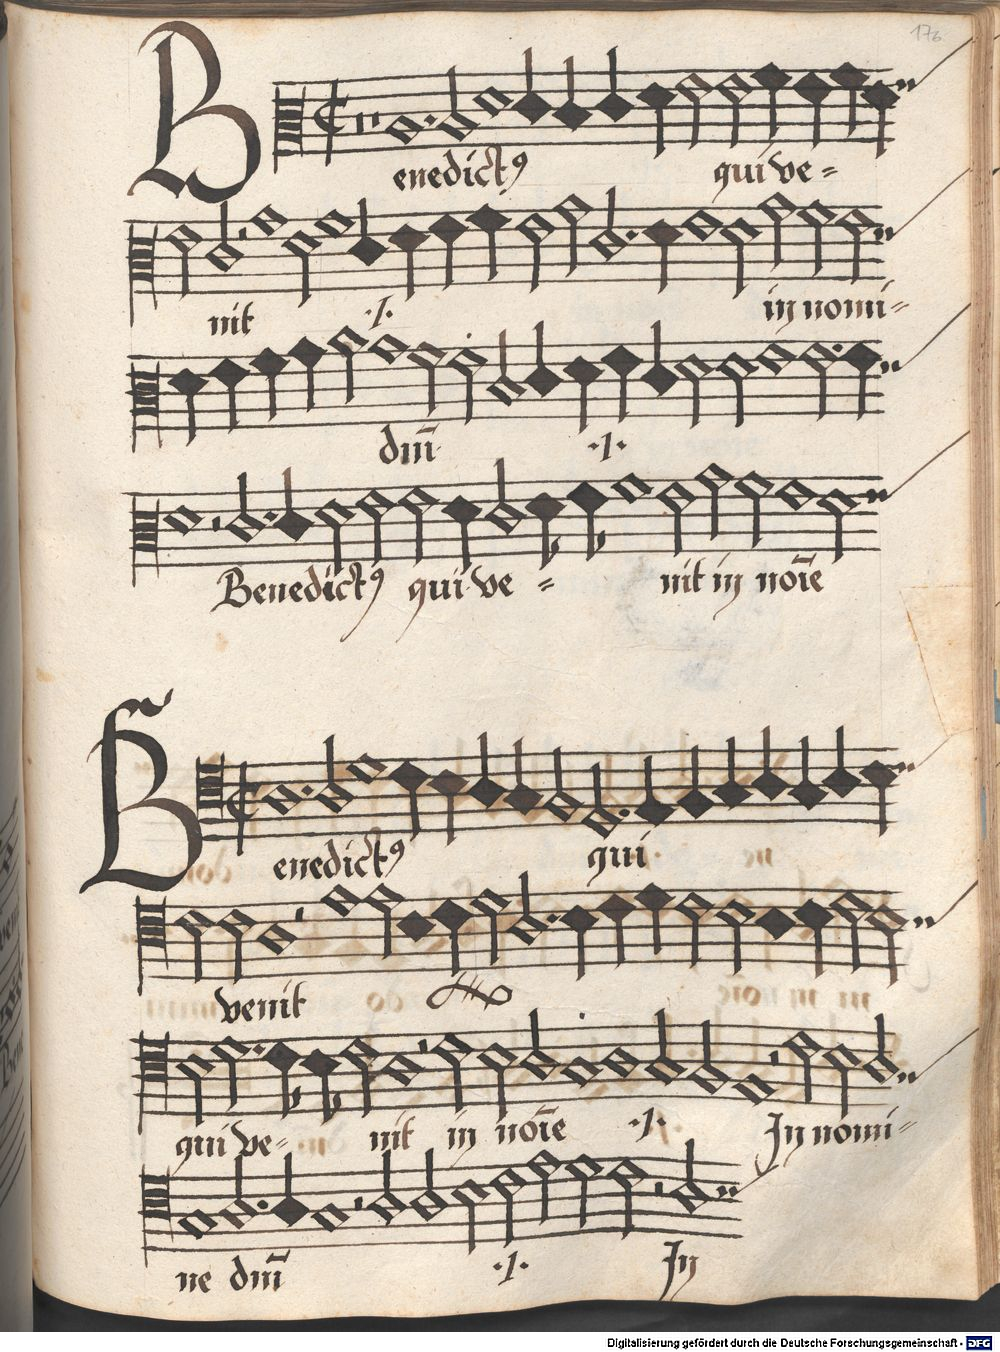 176
Benedictꝰ qui ve=
nit ·/· in nomi=
dm̄ ·/·
Benedictꝰ qui ve = nit in noīe
Benedictꝰ qui
venit
qui ve= nit in noīe ·/· In nomi=
ne dm̄ ·/· In
Digitalisierung gefördert durch die Deutsche Forschungsgemeinschaft - DFG